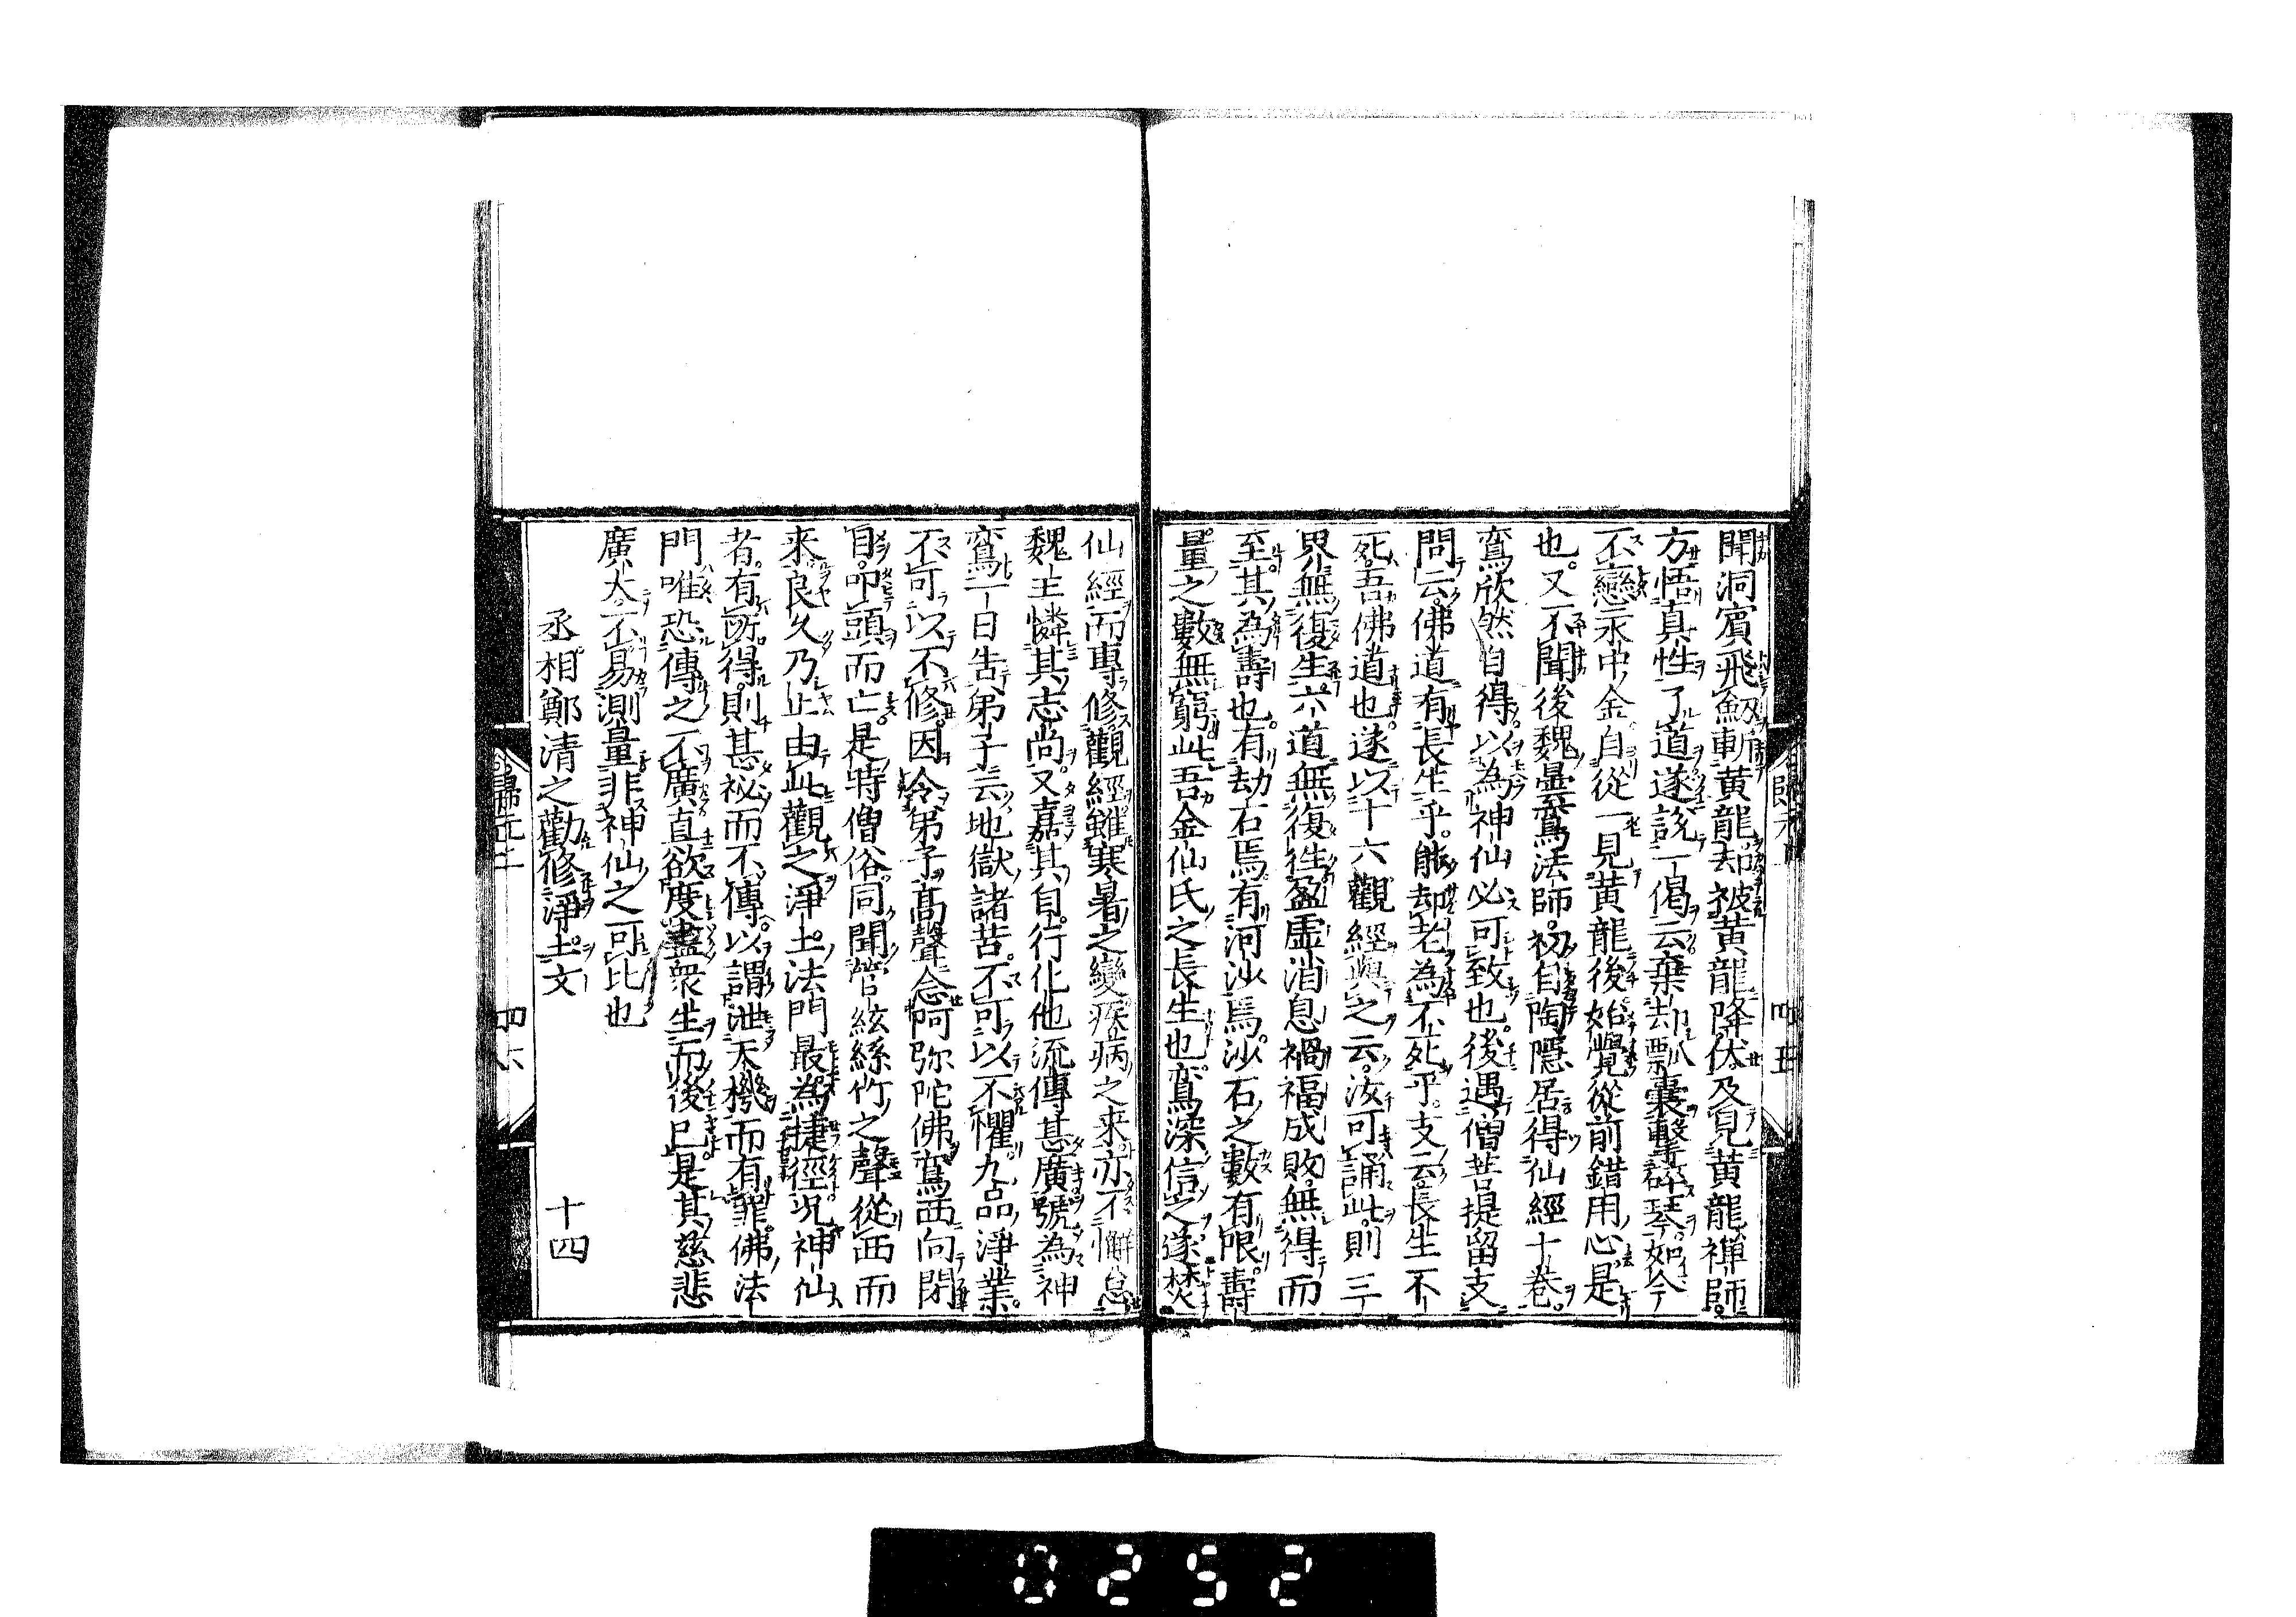 聞洞賓飛劔斬黄龍却被黄龍降伏及見黄龍禅師
方悟真性了道遂説一偈云棄却瓢囊擊碎琴如今
不戀汞中金自從一見黄龍後始覺從前錯用心是
也又不聞後魏曇鸞法師初自陶隱居得仙經十巻
鸞欣然自得以為神仙必可致也後遇僧菩提留支
問云佛道有長生乎能却老為不死乎支云長生不
死吾佛道也遂以十六觀經與之云汝可誦此則三
界無復生六道無復徃盈虚消息禍福成敗無得而
至其為壽也有劫石焉有河沙焉沙石之數有限壽
量之數無窮此吾金仙氏之長生也鸞深信之遂焚
仙經而專修觀經雖寒暑之變疾病之来亦不懈怠
魏主憐其志尚又嘉其自行化他流傳甚廣號為神
鸞一日告弟子云地獄諸苦不可以不懼九品淨業
不可以不修因令弟子髙聲念阿弥陀佛鸞西向閉
目叩頭而亡是時僧俗同聞管絃絲竹之聲從西而
来良久乃止由此觀之淨土法門最為捷徑况神仙
者有所得則甚祕而不傳以謂泄天機而有罪佛法
門唯恐傳之不廣直欲度盡衆生而後已是其慈悲
廣大不易測量非神仙之可比也
丞相鄭清之勸修淨土文
十四
歸元上
四六
0252